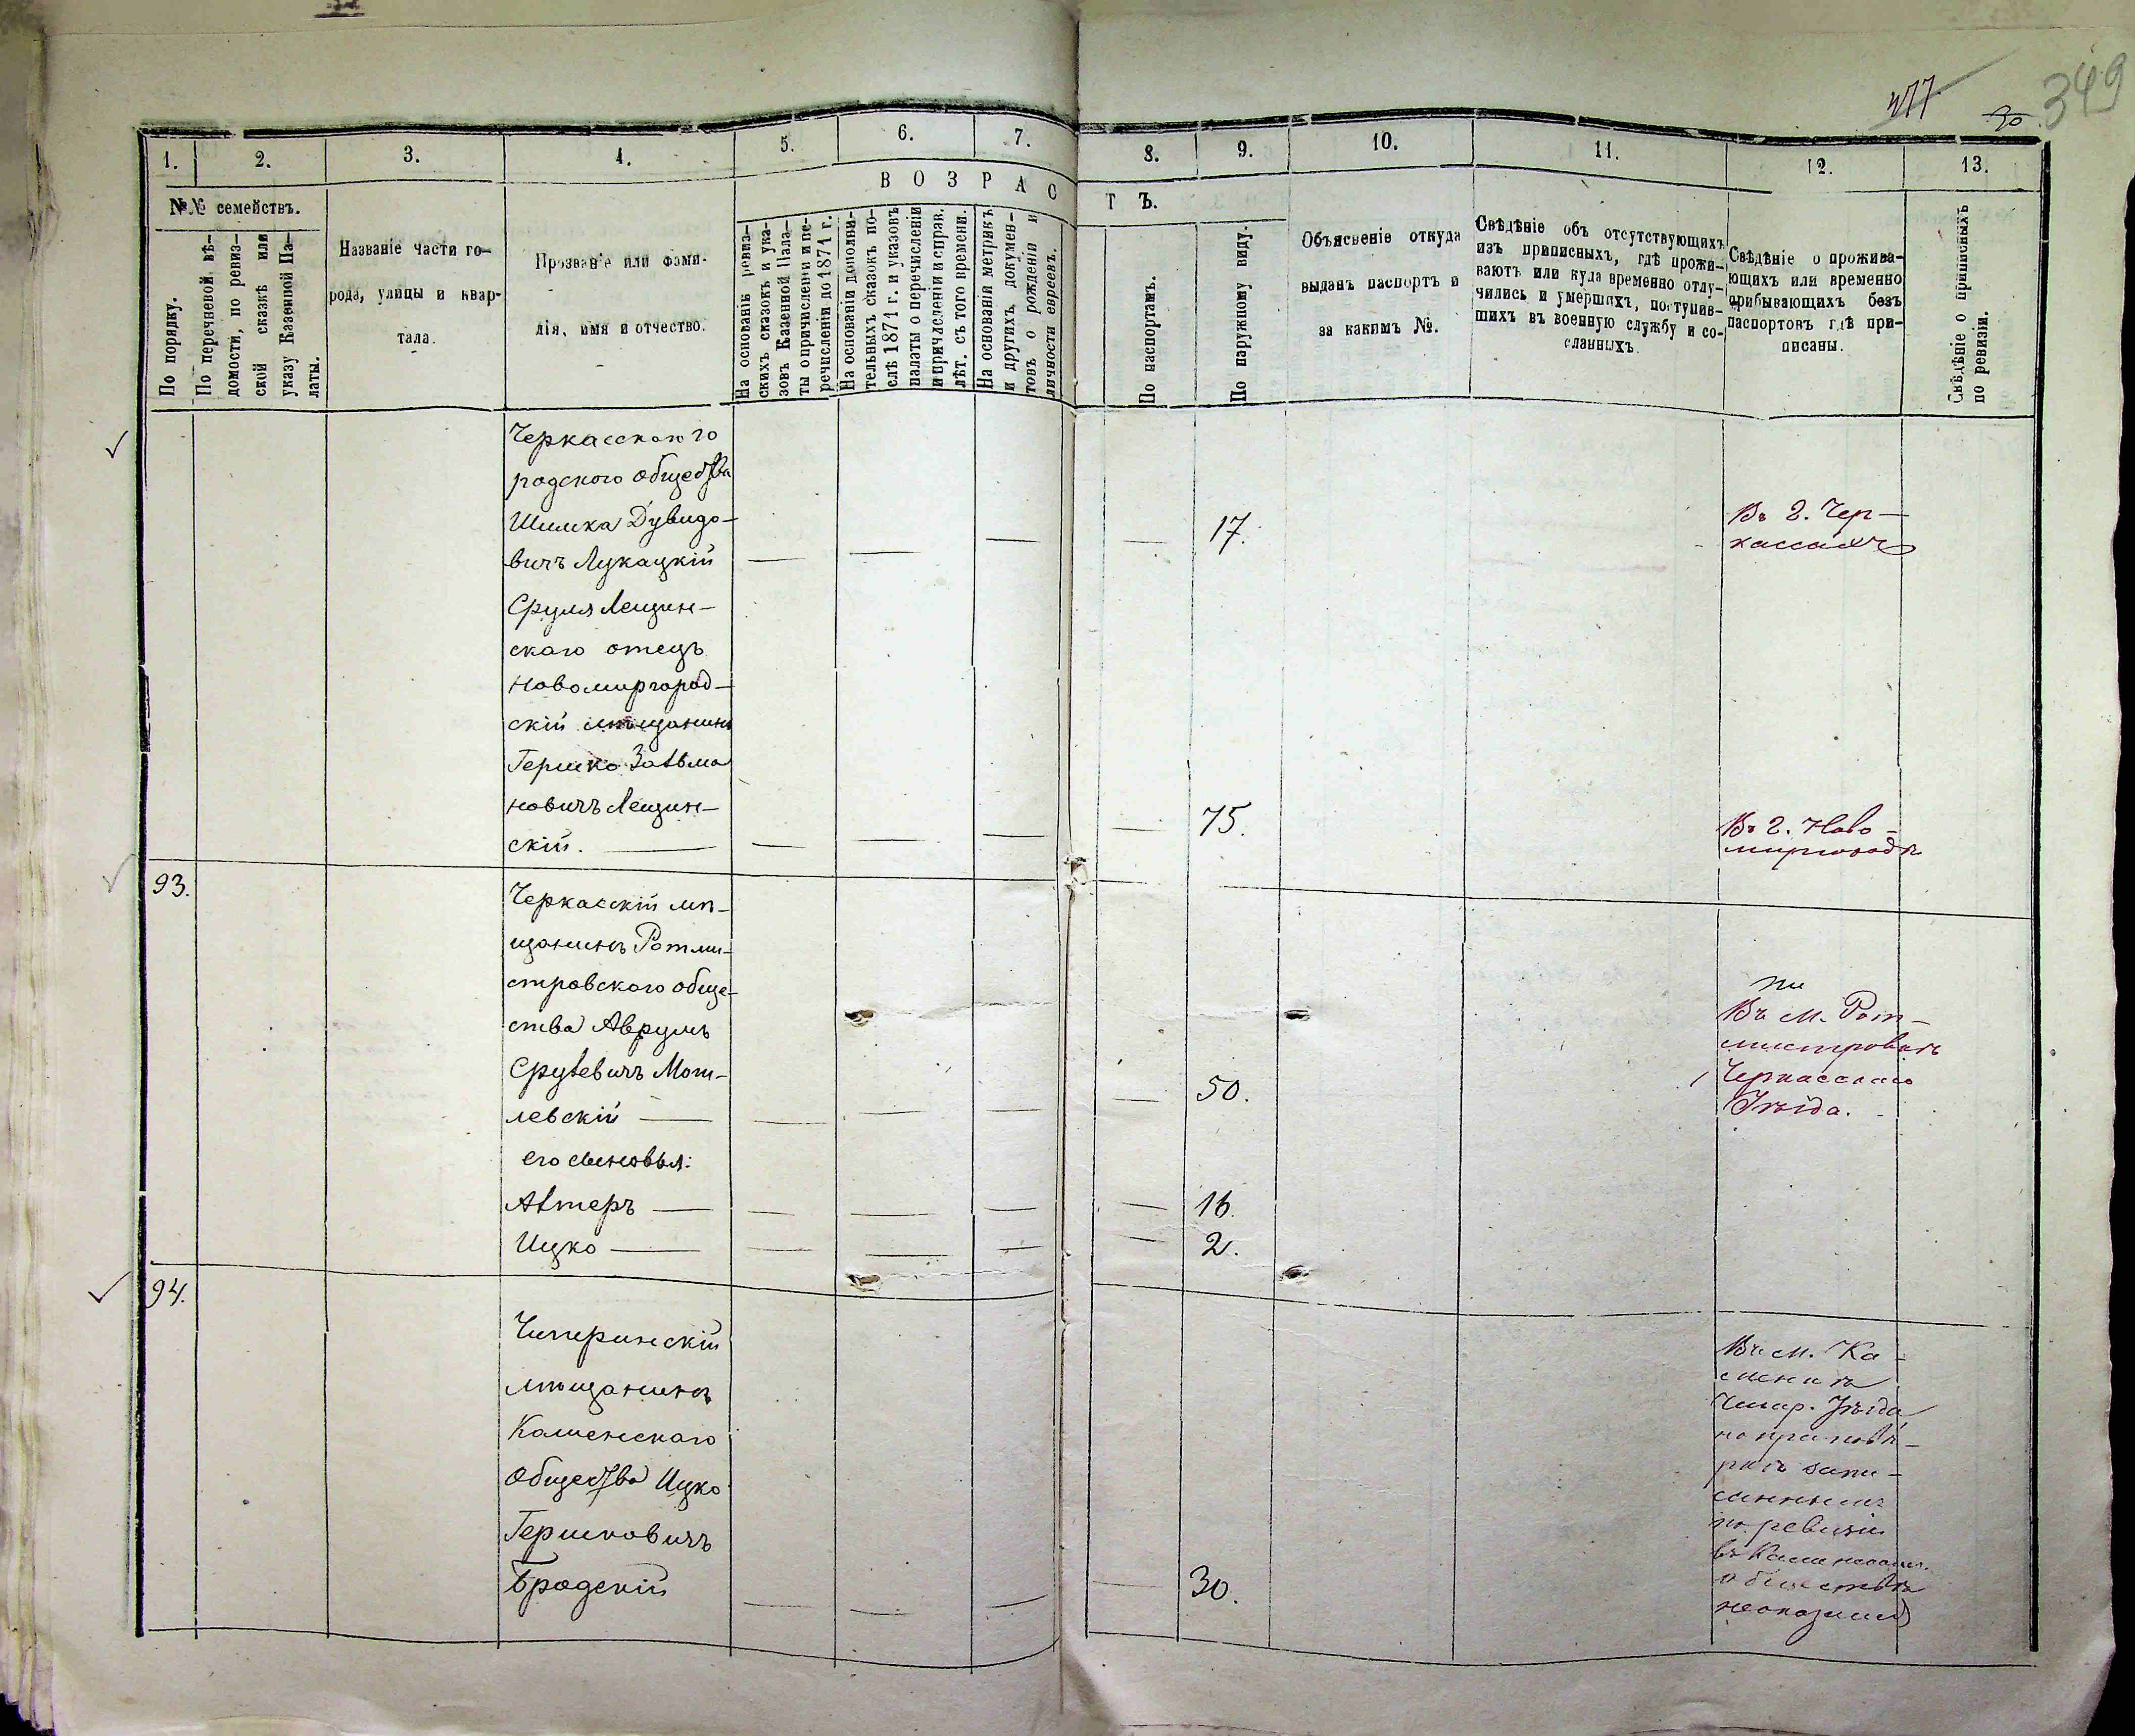 477 30 349
1. 2. 3. 4. 5. 6. 7. 8. 9. 10. 11. 12. 13.
В О З Р А С Т Ъ.
№№ семействъ.
По порядку.
По перечневой вѣ-
домости, по ревиз-
ской сказкѣ или
указу Казенной Па-
латы.
Названіе части го-
рода, улицы и квар-
тала.
Прозваніе или фами-
лія, имя и отчество.
На основаніи ревиз-
скихъ сказокъ и ука-
зовъ Казенной Пала-
ты о причисленіи и пе-
речисленіи до 1871 г.
На основаніи дополни-
тельныхъ сказокъ по-
слѣ 1871 г. и указовъ
палаты о перечисленіи
и причисленіи и справ.
лѣт. съ того времени.
На основаніи метрикъ
и другихъ докумен-
товъ о рожденіи и
личности евреевъ.
По паспортамъ.
По наружному виду.
Объясненіе откуда
выданъ паспортъ и
за какимъ №.
Свѣдѣніе объ отсутствующихъ
изъ приписныхъ, гдѣ прожи-
ваютъ или куда временно отлу-
чились и умершихъ, поступив-
шихъ въ военную службу и со-
сланныхъ.
Свѣдѣніе о прожива-
ющихъ или временно
прибывающихъ безъ
паспортовъ гдѣ при-
писаны.
Свѣдѣніе о приписныхъ
по ревизіи.
Черкасскаго го
родского общества
Шимка Дувидо-
вичъ Лукацкій — — — — 17.
Въ г. Чер-
кассахъ
Сруля Лещин-
скаго отецъ
Новомиргород-
скій мѣщанинъ
Гершко Зальма
новичъ Лещин-
скій. — — — — — 75.
Въ г. Ново-
миргородѣ
93.
Черкасскій мѣ-
щанинъ Ротми-
стровского обще-
ства Аврумъ
Срулевичъ Моги-
левскій — — — — — 50.
Въ м. Рот-
мистровкѣ
Черкасскаго
Уѣзда.
его сыновья:
Алтеръ — — — — — 16.
Ицко — — — — — 2.
94.
Чигиринскій
мѣщанинъ
Каменскаго
общества Ицко
Гершковичъ
Бродскій — — — — 30.
Въ м. Ка-
менкѣ
Чигир. Уѣзда,
по провѣ-
ркѣ запи-
саннымъ
по ревизіи
въ Каменском.
обществѣ
неоказался